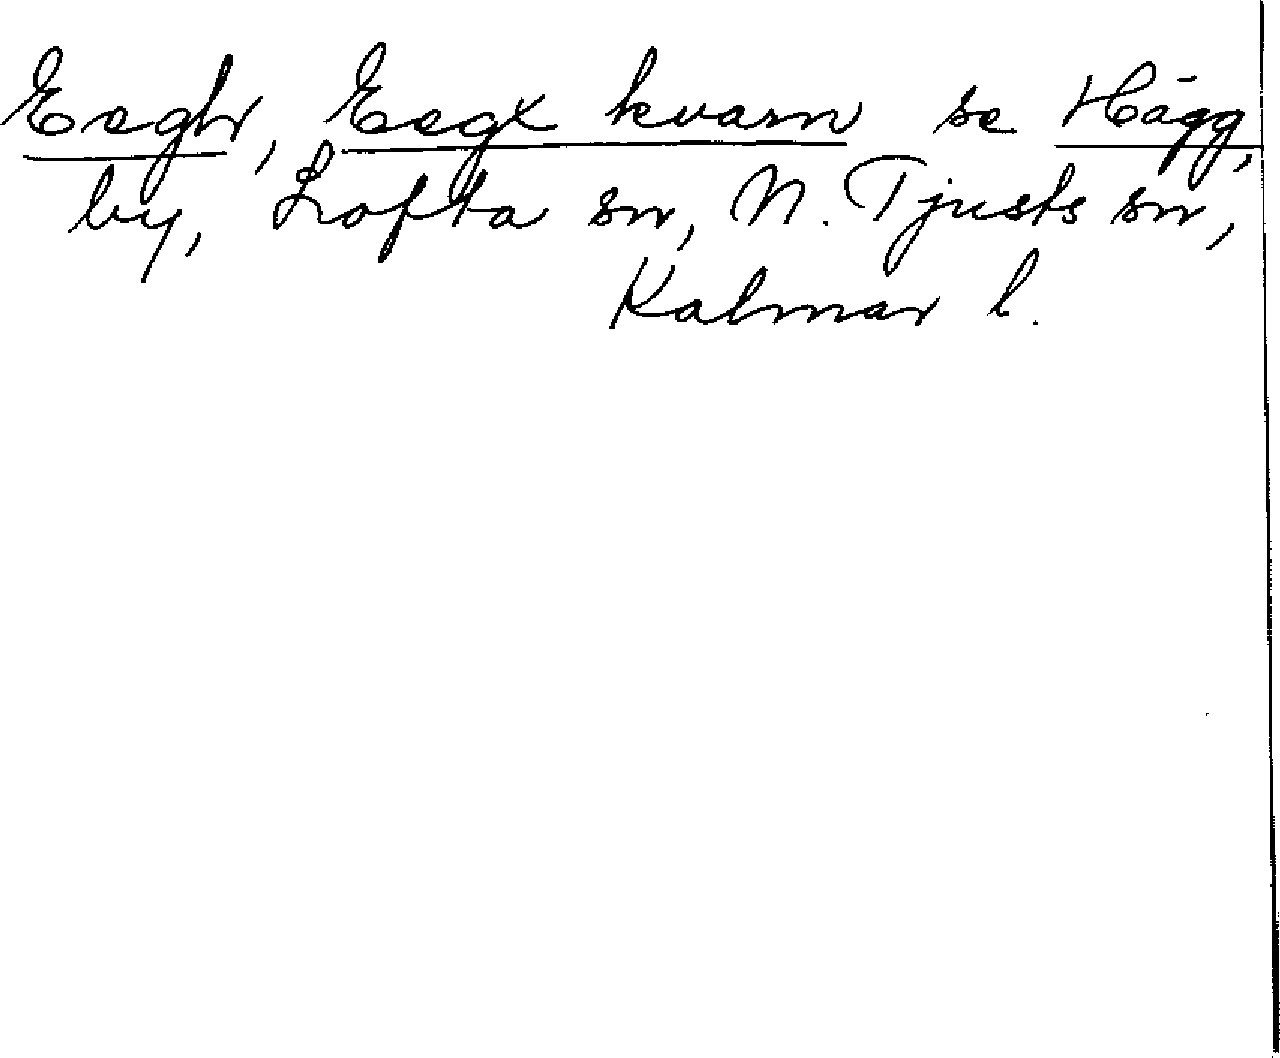 Eegh, Eegx kvarn se Hägg,
by, Lofta sn, N. Tjusts sn,
Kalmar l.